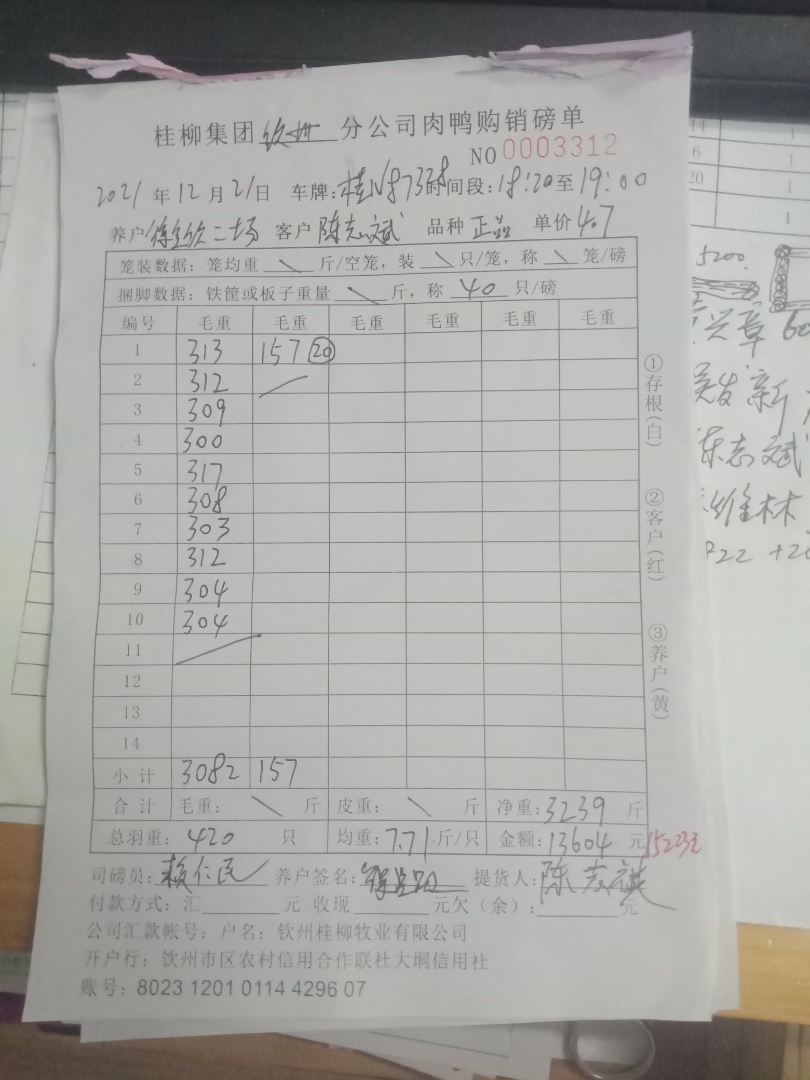 桂柳集团钦州分公司肉鸭购销磅单
NO 0003312
2021年12月21日 车牌:桂N87328时间段:18:20至19:00
养户 二场 客户 陈志斌 品种 正品 单价 4.7
笼装数据: 笼均重 \ 斤/空笼, 装 \ 只/笼, 称 \ 笼/磅
捆脚数据: 铁筐或板子重量 \ 斤, 称 40 只/磅
编号 毛重 毛重 毛重 毛重 毛重 毛重
1 313 157 20
2 312
3 309
4 300
5 317
6 308
7 303
8 312
9 304
10 304
11
12
13
14
小计 3082 157
合计 毛重: \ 斤 皮重: \ 斤 净重:3239 斤
总羽重: 420 只 均重:7.71斤/只 金额:13604元
司磅员: 赖仁民 养户签名: 提货人:陈志
付款方式: 汇 元 收现 元欠(余): 元
公司汇款帐号: 户名: 钦州桂柳牧业有限公司
开户行: 饮州市区农村信用合作联社大垌信用社
账号: 8023 1201 0114 4296 07
①存根(白)
②客户(红)
③养户(黄)
14 1
6 1
20 1
5200
兴章 60
发新
陈志斌
维林